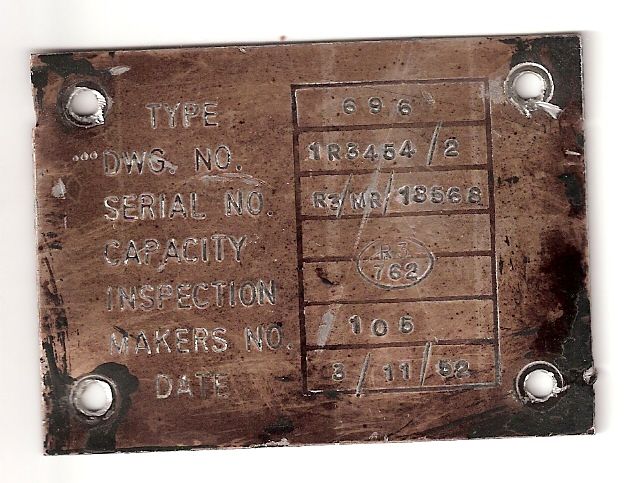 TYPE 696
DWG. NO. 1R3454/2
SERIAL NO. R3/MR/13568
CAPACITY
INSPECTION R3 762
MAKERS NO. 105
DATE 3/11/52